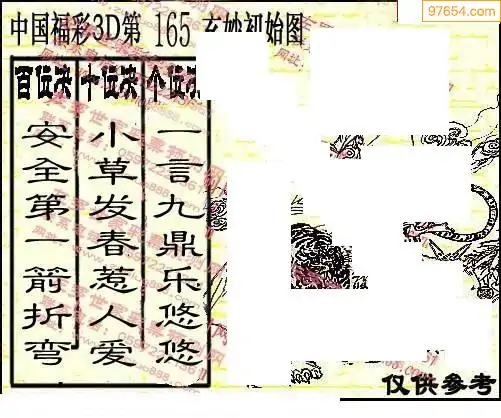 97654.com
中国福彩3D第 165 玄妙初始图
百位决 十位决 个位决
安全第一箭折弯
小草发春惹人爱
一言九鼎乐悠悠
仅供参考